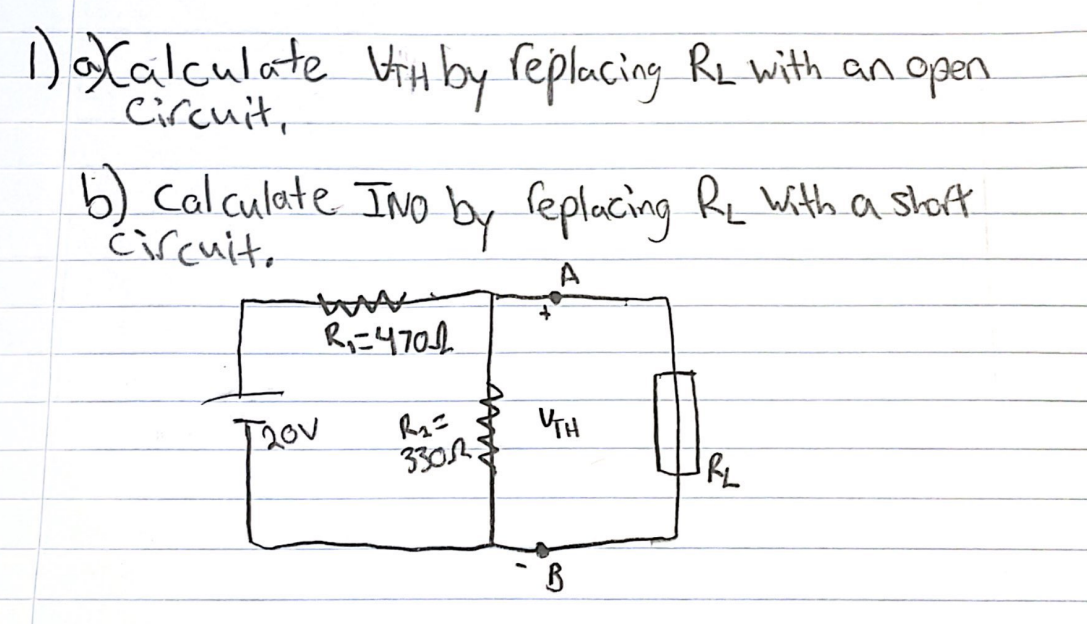 1) a) Calculate VTH by replacing RL with an open
circuit.
b) Calculate INO by replacing RL with a short
circuit.
A
+
R₁=470Ω
20V
R₂=
330Ω
VTH
RL
-
B